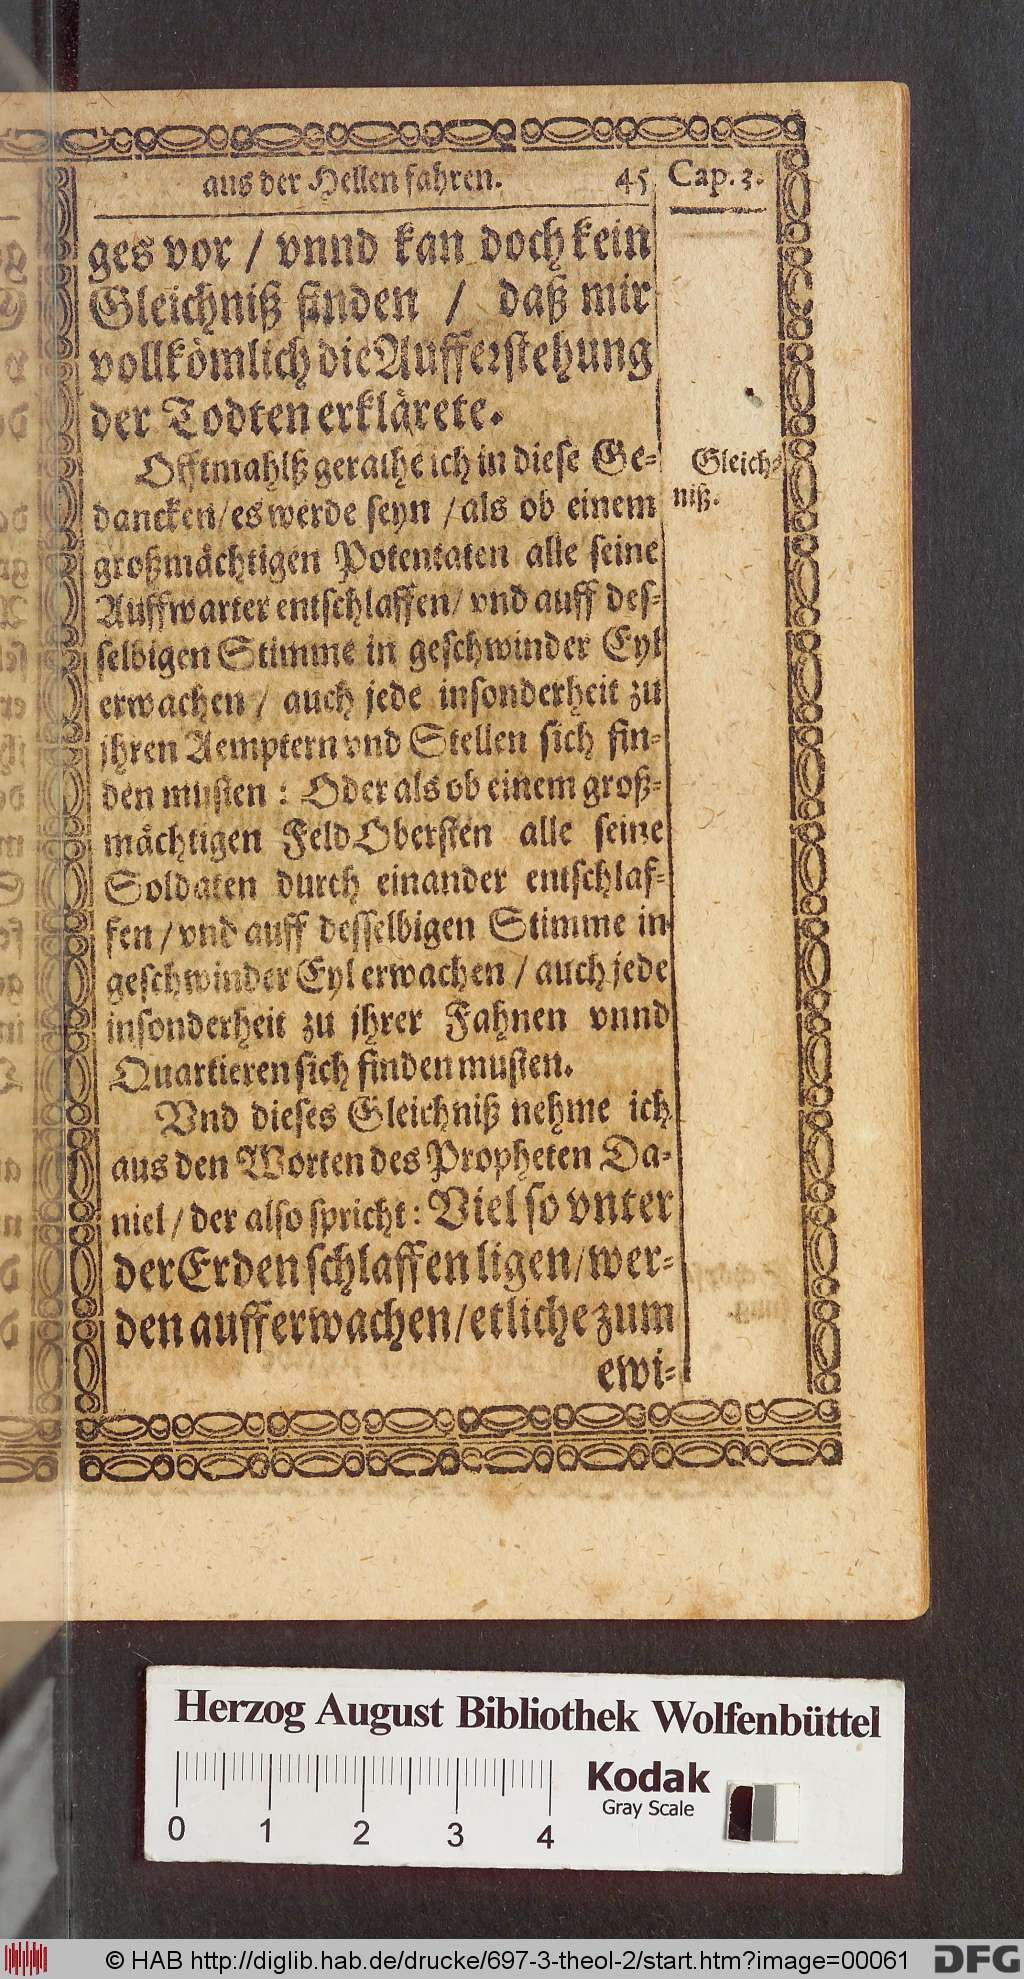 aus der Hellen fahren. 45 Cap. 3.
ges vor / vnnd kan doch kein
Gleichniß finden / daß mir
vollkömlich die Aufferstehung
der Todten erklärete.
Offtmahlß gerathe ich in diese Ge-
dancken / es werde seyn / als ob einem
großmächtigen Potentaten alle seine
Auffwarter entschlaffen / vnd auff des-
selbigen Stimme in geschwinder Eyl
erwachen / auch jede insonderheit zu
jhren Aemptern vnd Stellen sich fin-
den musten : Oder als ob einem groß-
mächtigen FeldObersten alle seine
Soldaten durch einander entschlaf-
fen / vnd auff desselbigen Stimme in
geschwinder Eyl erwachen / auch jede
insonderheit zu jhrer Fahnen vnnd
Quartieren sich finden musten.
Vnd dieses Gleichniß nehme ich
aus den Worten des Propheten Da-
niel / der also spricht : Viel so vnter
der Erden schlaffen ligen / wer-
den aufferwachen / etliche zum
ewi-
Gleich-
niß.
Herzog August Bibliothek Wolfenbüttel
Kodak
Gray Scale
0 1 2 3 4
© HAB http://diglib.hab.de/drucke/697-3-theol-2/start.htm?image=00061
DFG